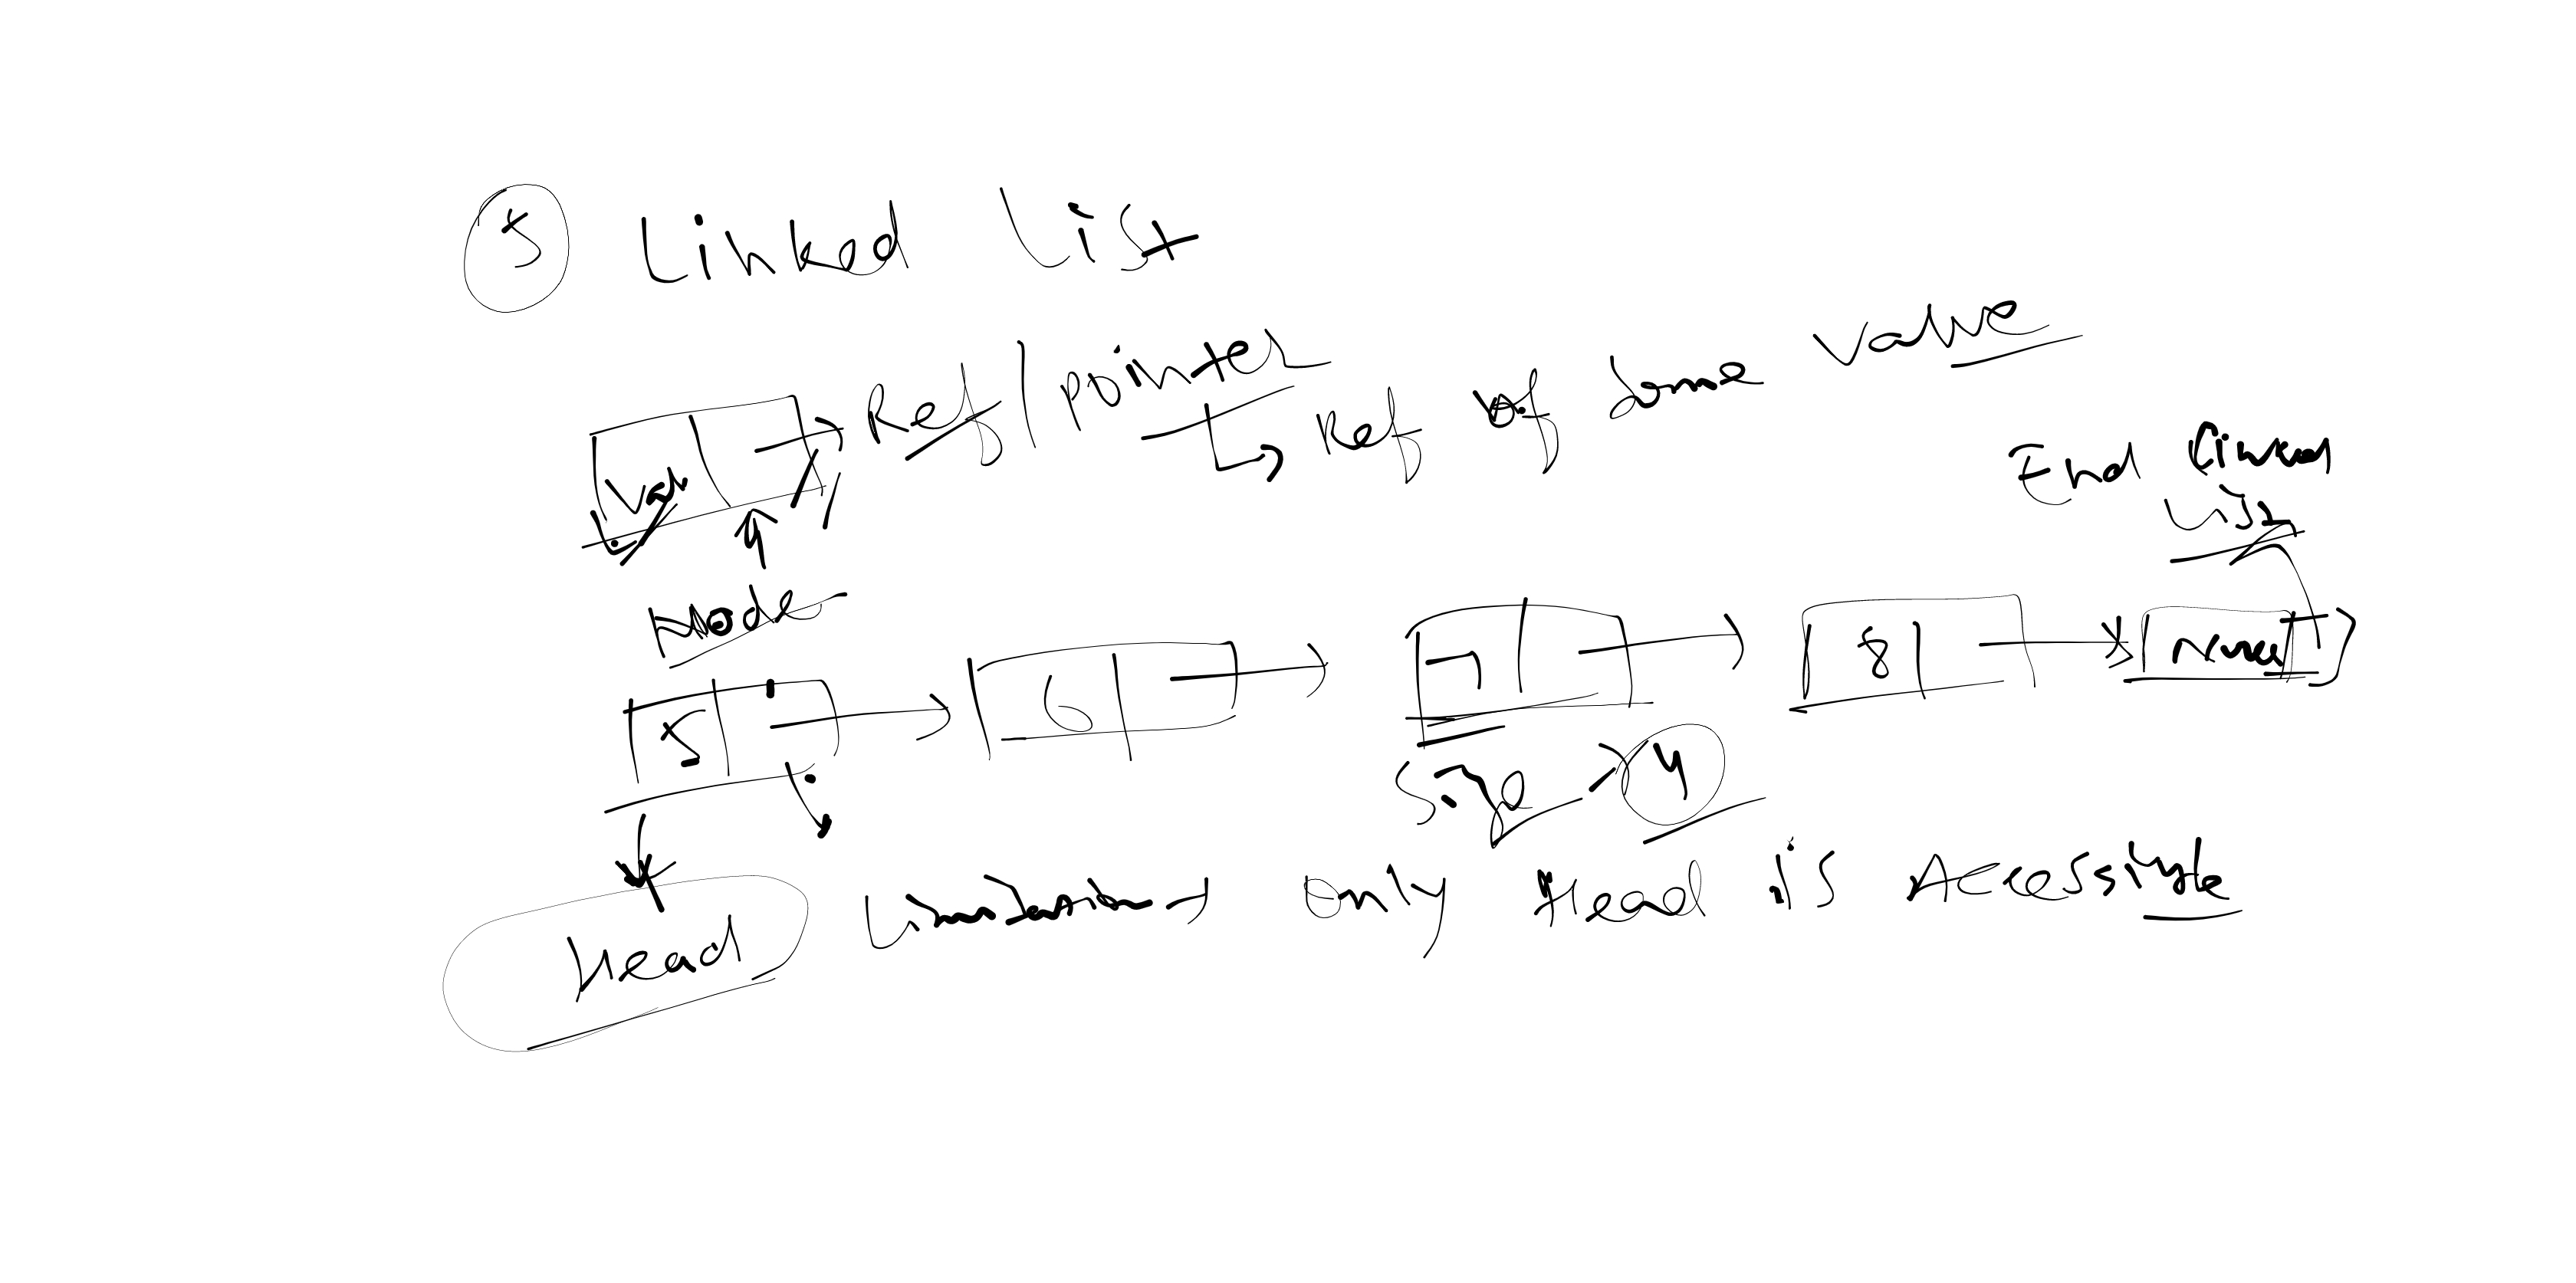 5 Linked List
Val Ref/pointer Ref of some value
Node
End Linked List
5 6 7 8
Size 4
Head
Limitation only Head is Accessible